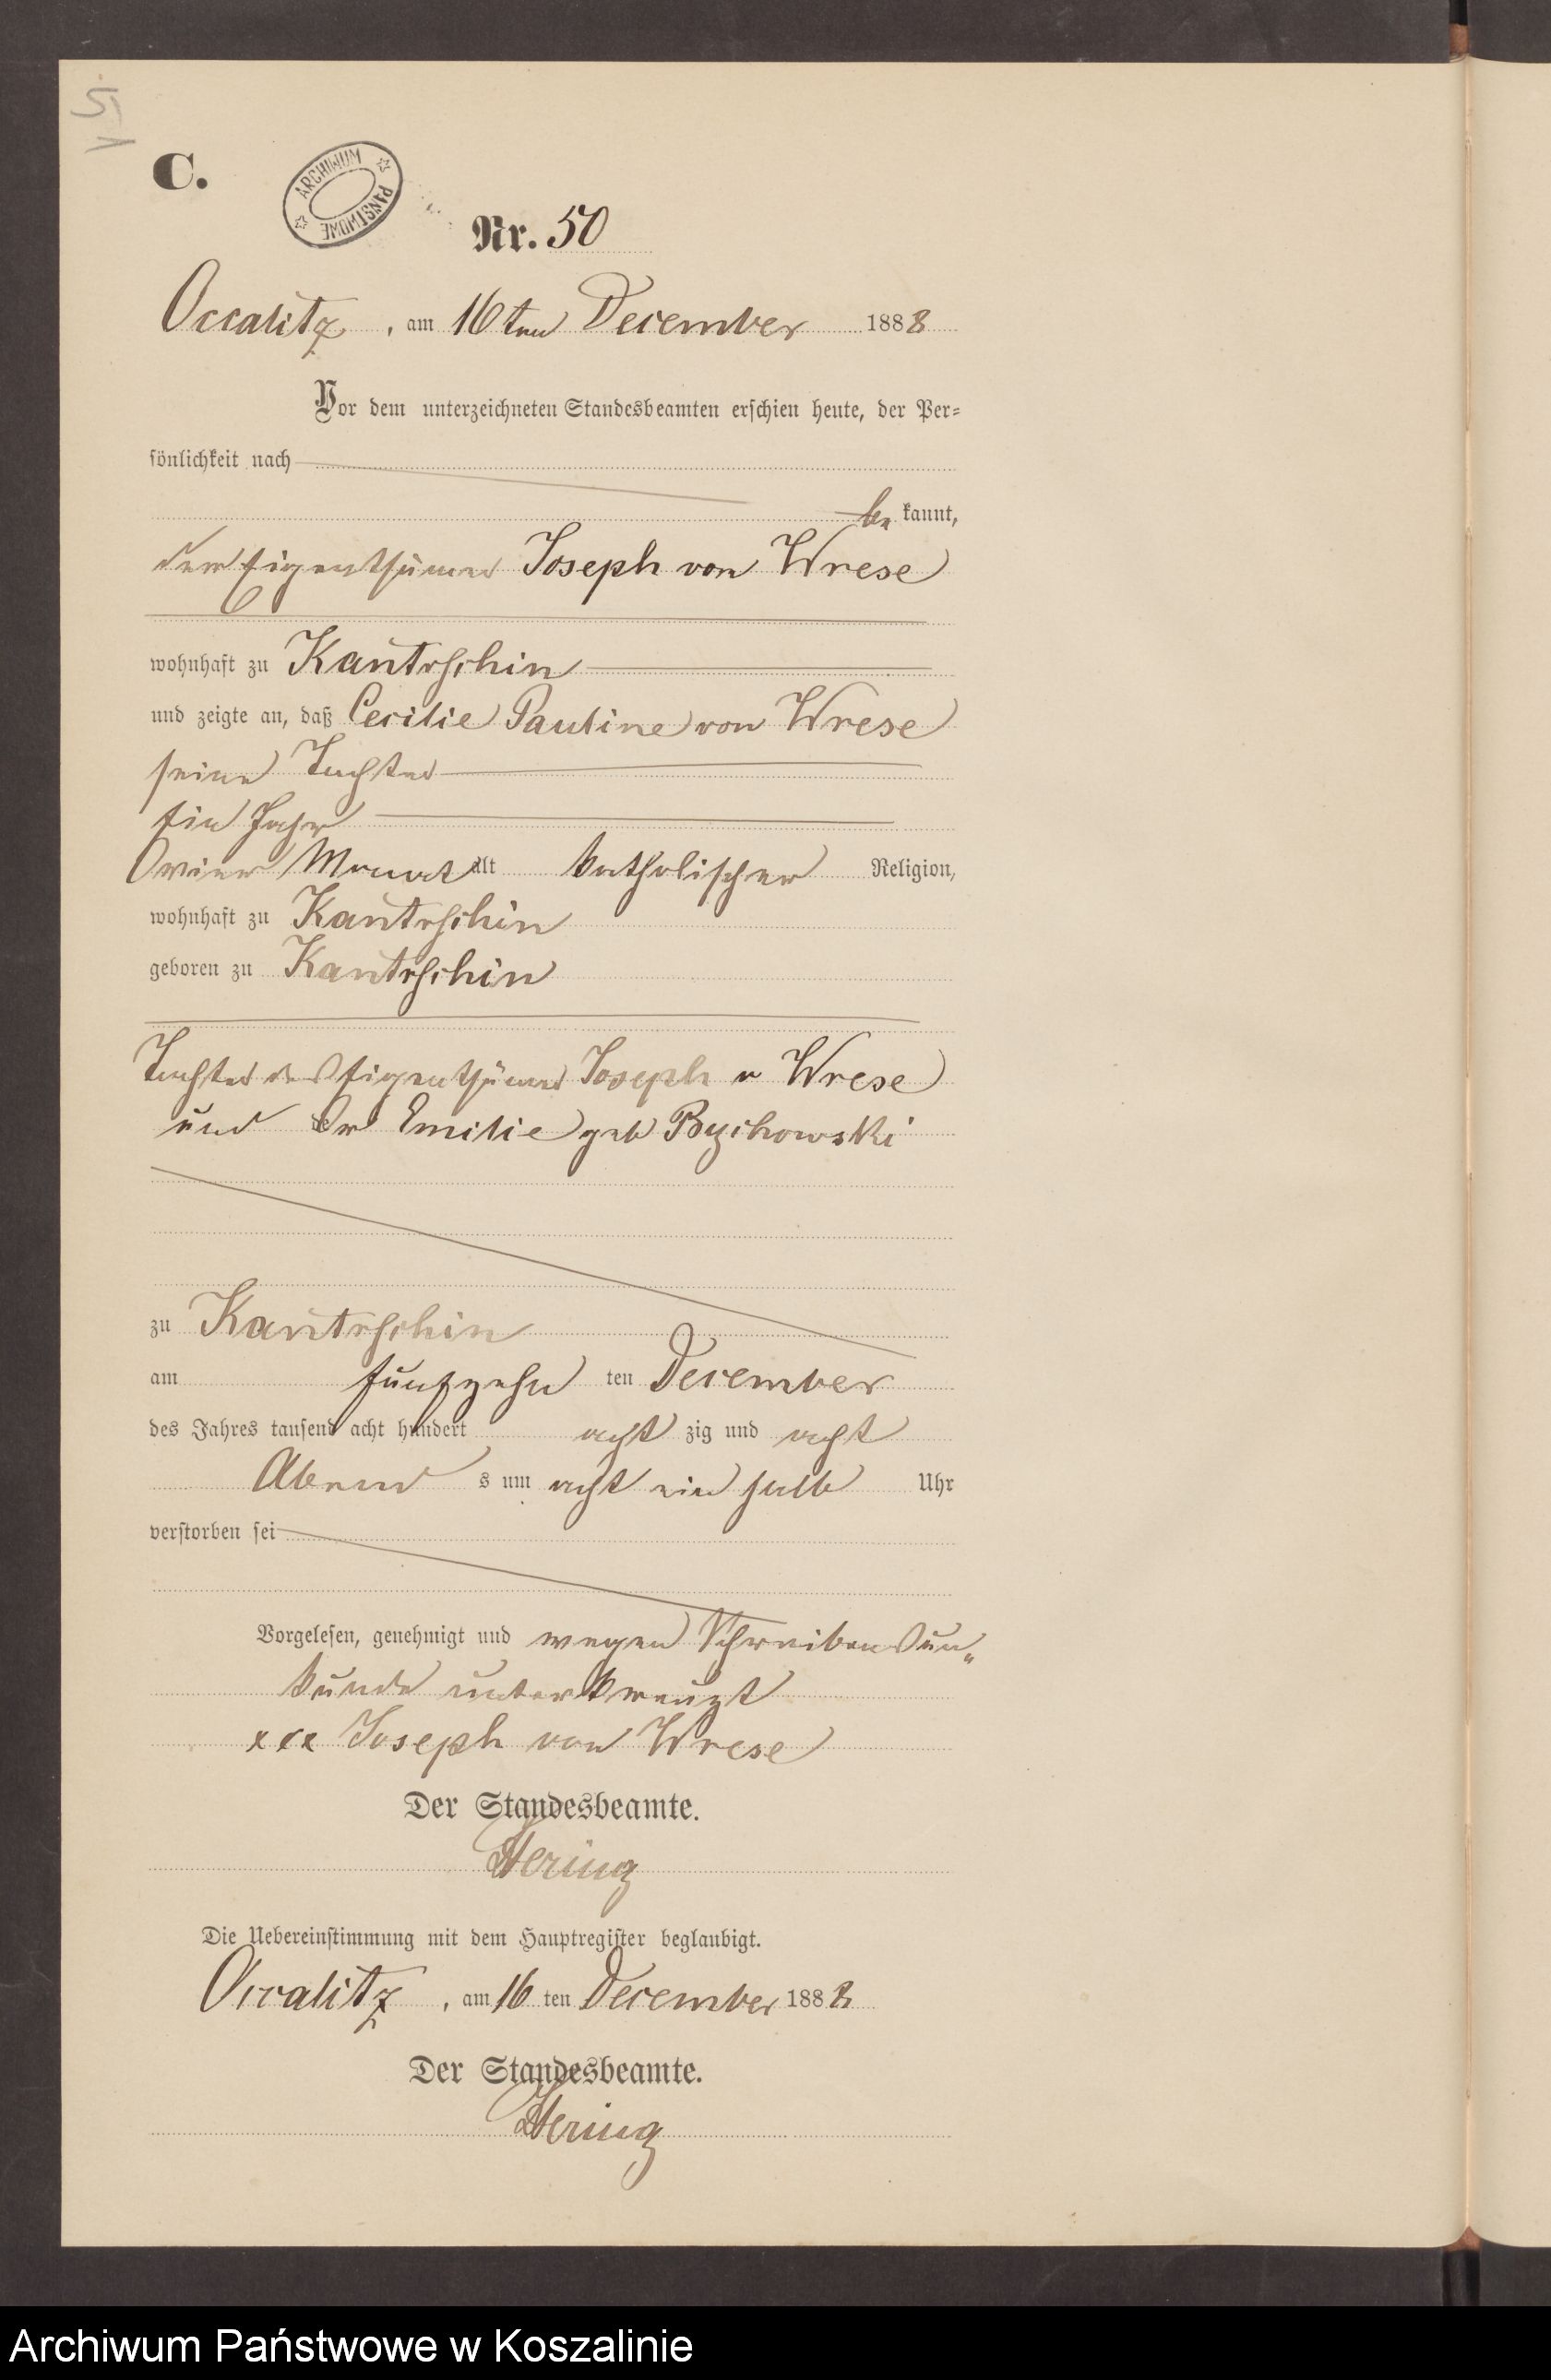 51
C.
ARCHIWUM PAŃSTWOWE
Nr. 50
Occalitz, am 16ten December 1888
Vor dem unterzeichneten Standesbeamten erschien heute, der Per=
sönlichkeit nach
bekannt,
der Eigenthümer Joseph von Wrese
wohnhaft zu Kantrschin
und zeigte an, daß Cecilie Pauline von Wrese
seine Tochter
ein Jahr
vier Monat alt katholischer Religion,
wohnhaft zu Kantrschin
geboren zu Kantrschin
Tochter des Eigenthümer Joseph v Wrese
und der Emilie geb Bychowski
zu Kantrschin
am fünfzehn ten December
des Jahres tausend acht hundert acht zig und acht
Abend s um acht ein halb Uhr
verstorben sei
Vorgelesen, genehmigt und wegen Schreibensun„
kunde unterkreuzt
xxx Joseph von Wrese
Der Standesbeamte.
Hering
Die Uebereinstimmung mit dem Hauptregister beglaubigt.
Occalitz, am 16 ten December 1888
Der Standesbeamte.
Hering
Archiwum Państwowe w Koszalinie